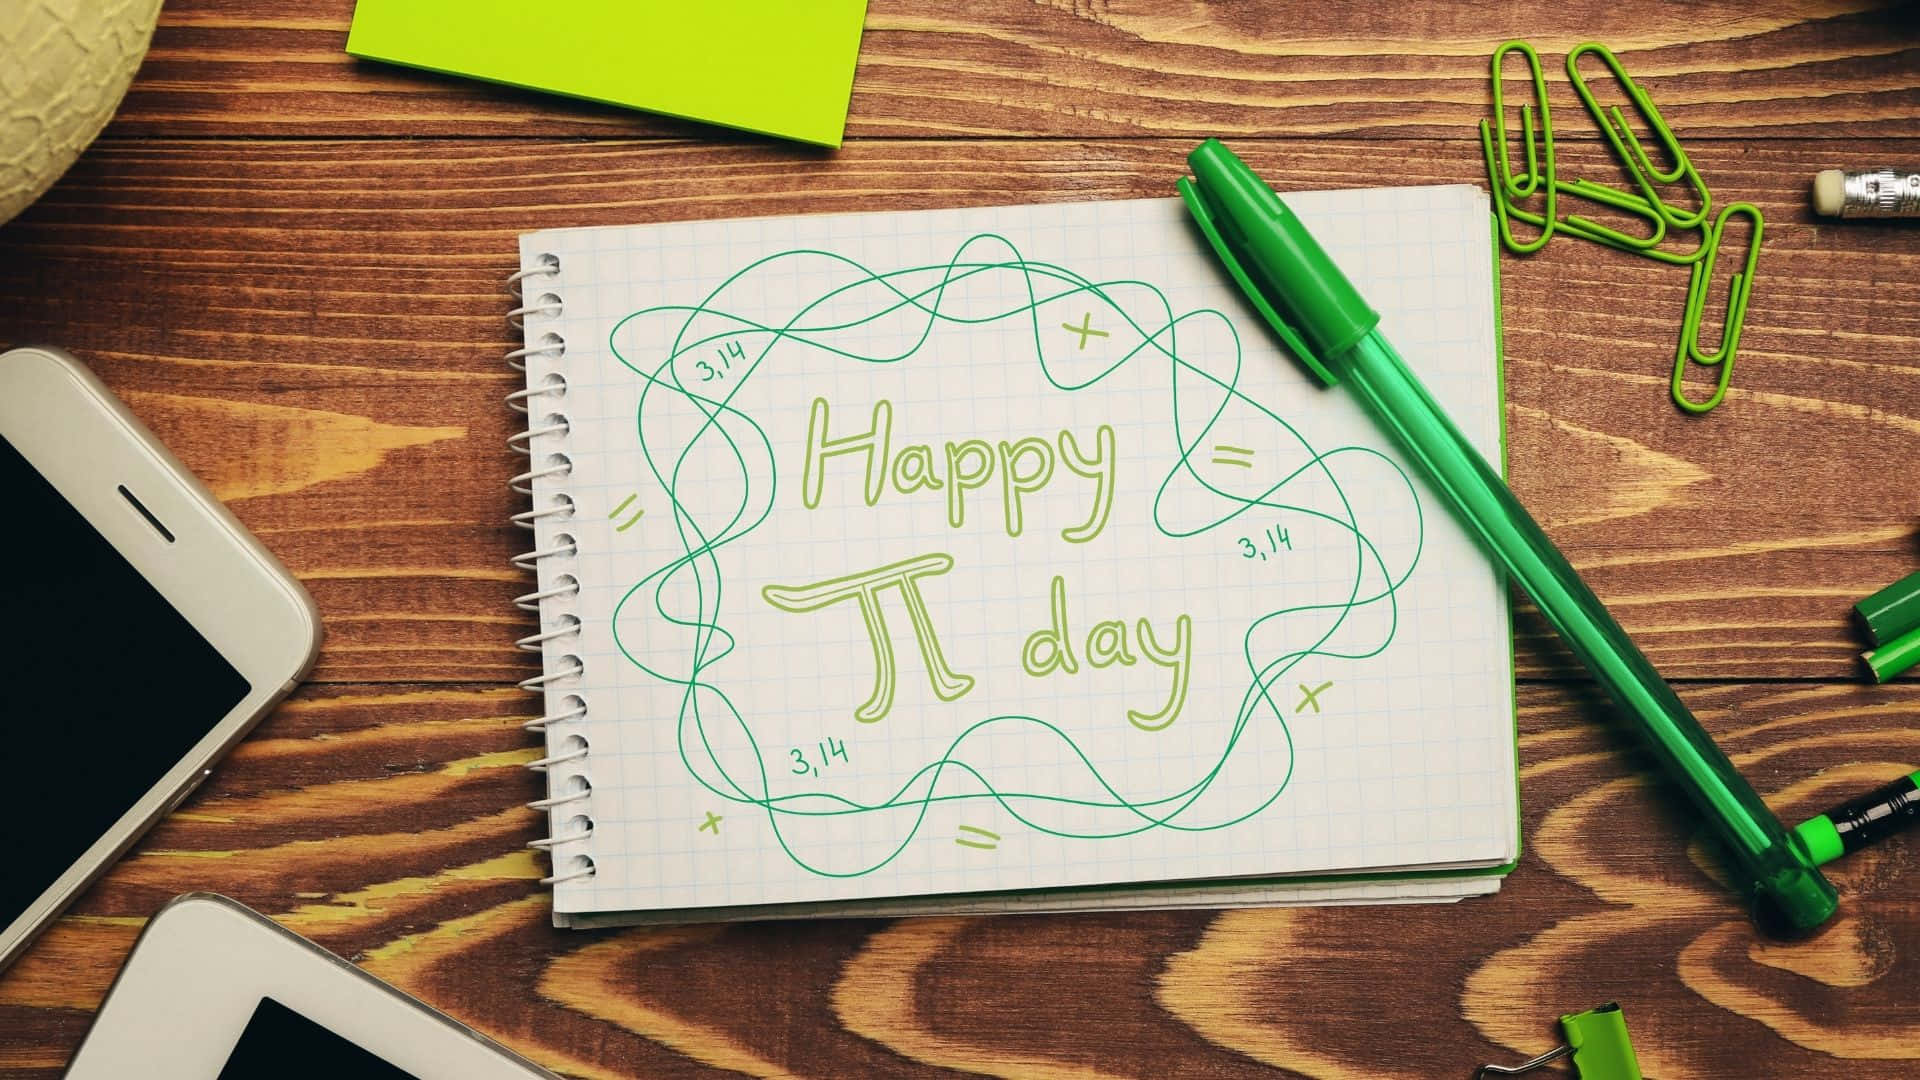 3,14
+
Happy
=
=
3,14
π day
×
3,14
+
=